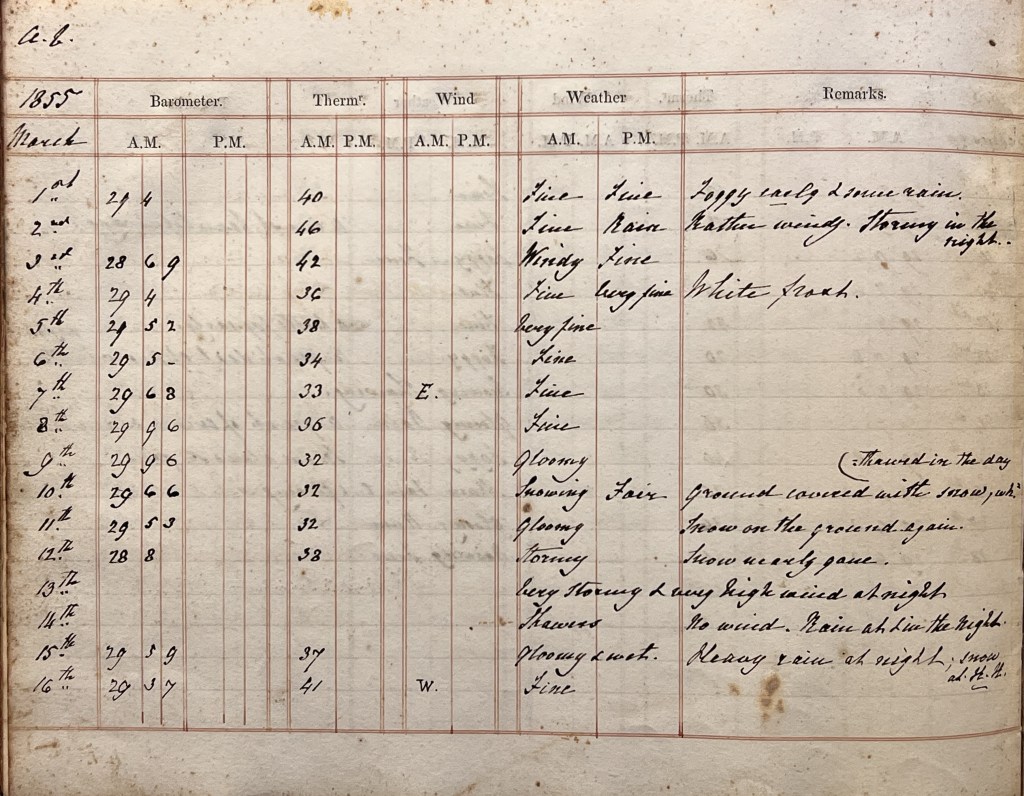 a. b.
1855 Barometer. Thermr. Wind Weather Remarks.
March A.M. P.M. A.M. P.M. A.M. P.M. A.M. P.M.
1st 29 4 40 Fine Fine Foggy early & some rain.
2nd 46 Fine Rain Rather windy. Stormy in the
night.
3rd 28 6 9 42 Windy Fine
4th 29 4 36 Fine Very fine White frost.
5th 29 5 2 38 Very fine
6th 29 5 - 34 Fine
7th 29 6 8 33 E. Fine
8th 29 9 6 36 Fine
9th 29 9 6 32 Gloomy (=thawed in the day
10th 29 6 6 32 Snowing Fair Ground covered with snow, wh:
11th 29 5 3 32 Gloomy Snow on the ground again.
12th 28 8 38 Stormy Snow nearly gone.
13th Very Stormy & very high wind at night
14th Showers No wind. Rain at & in the night.
15th 29 5 9 37 Gloomy & wet. Heavy rain at night; snow
at H. H.
16th 29 3 7 41 W. Fine